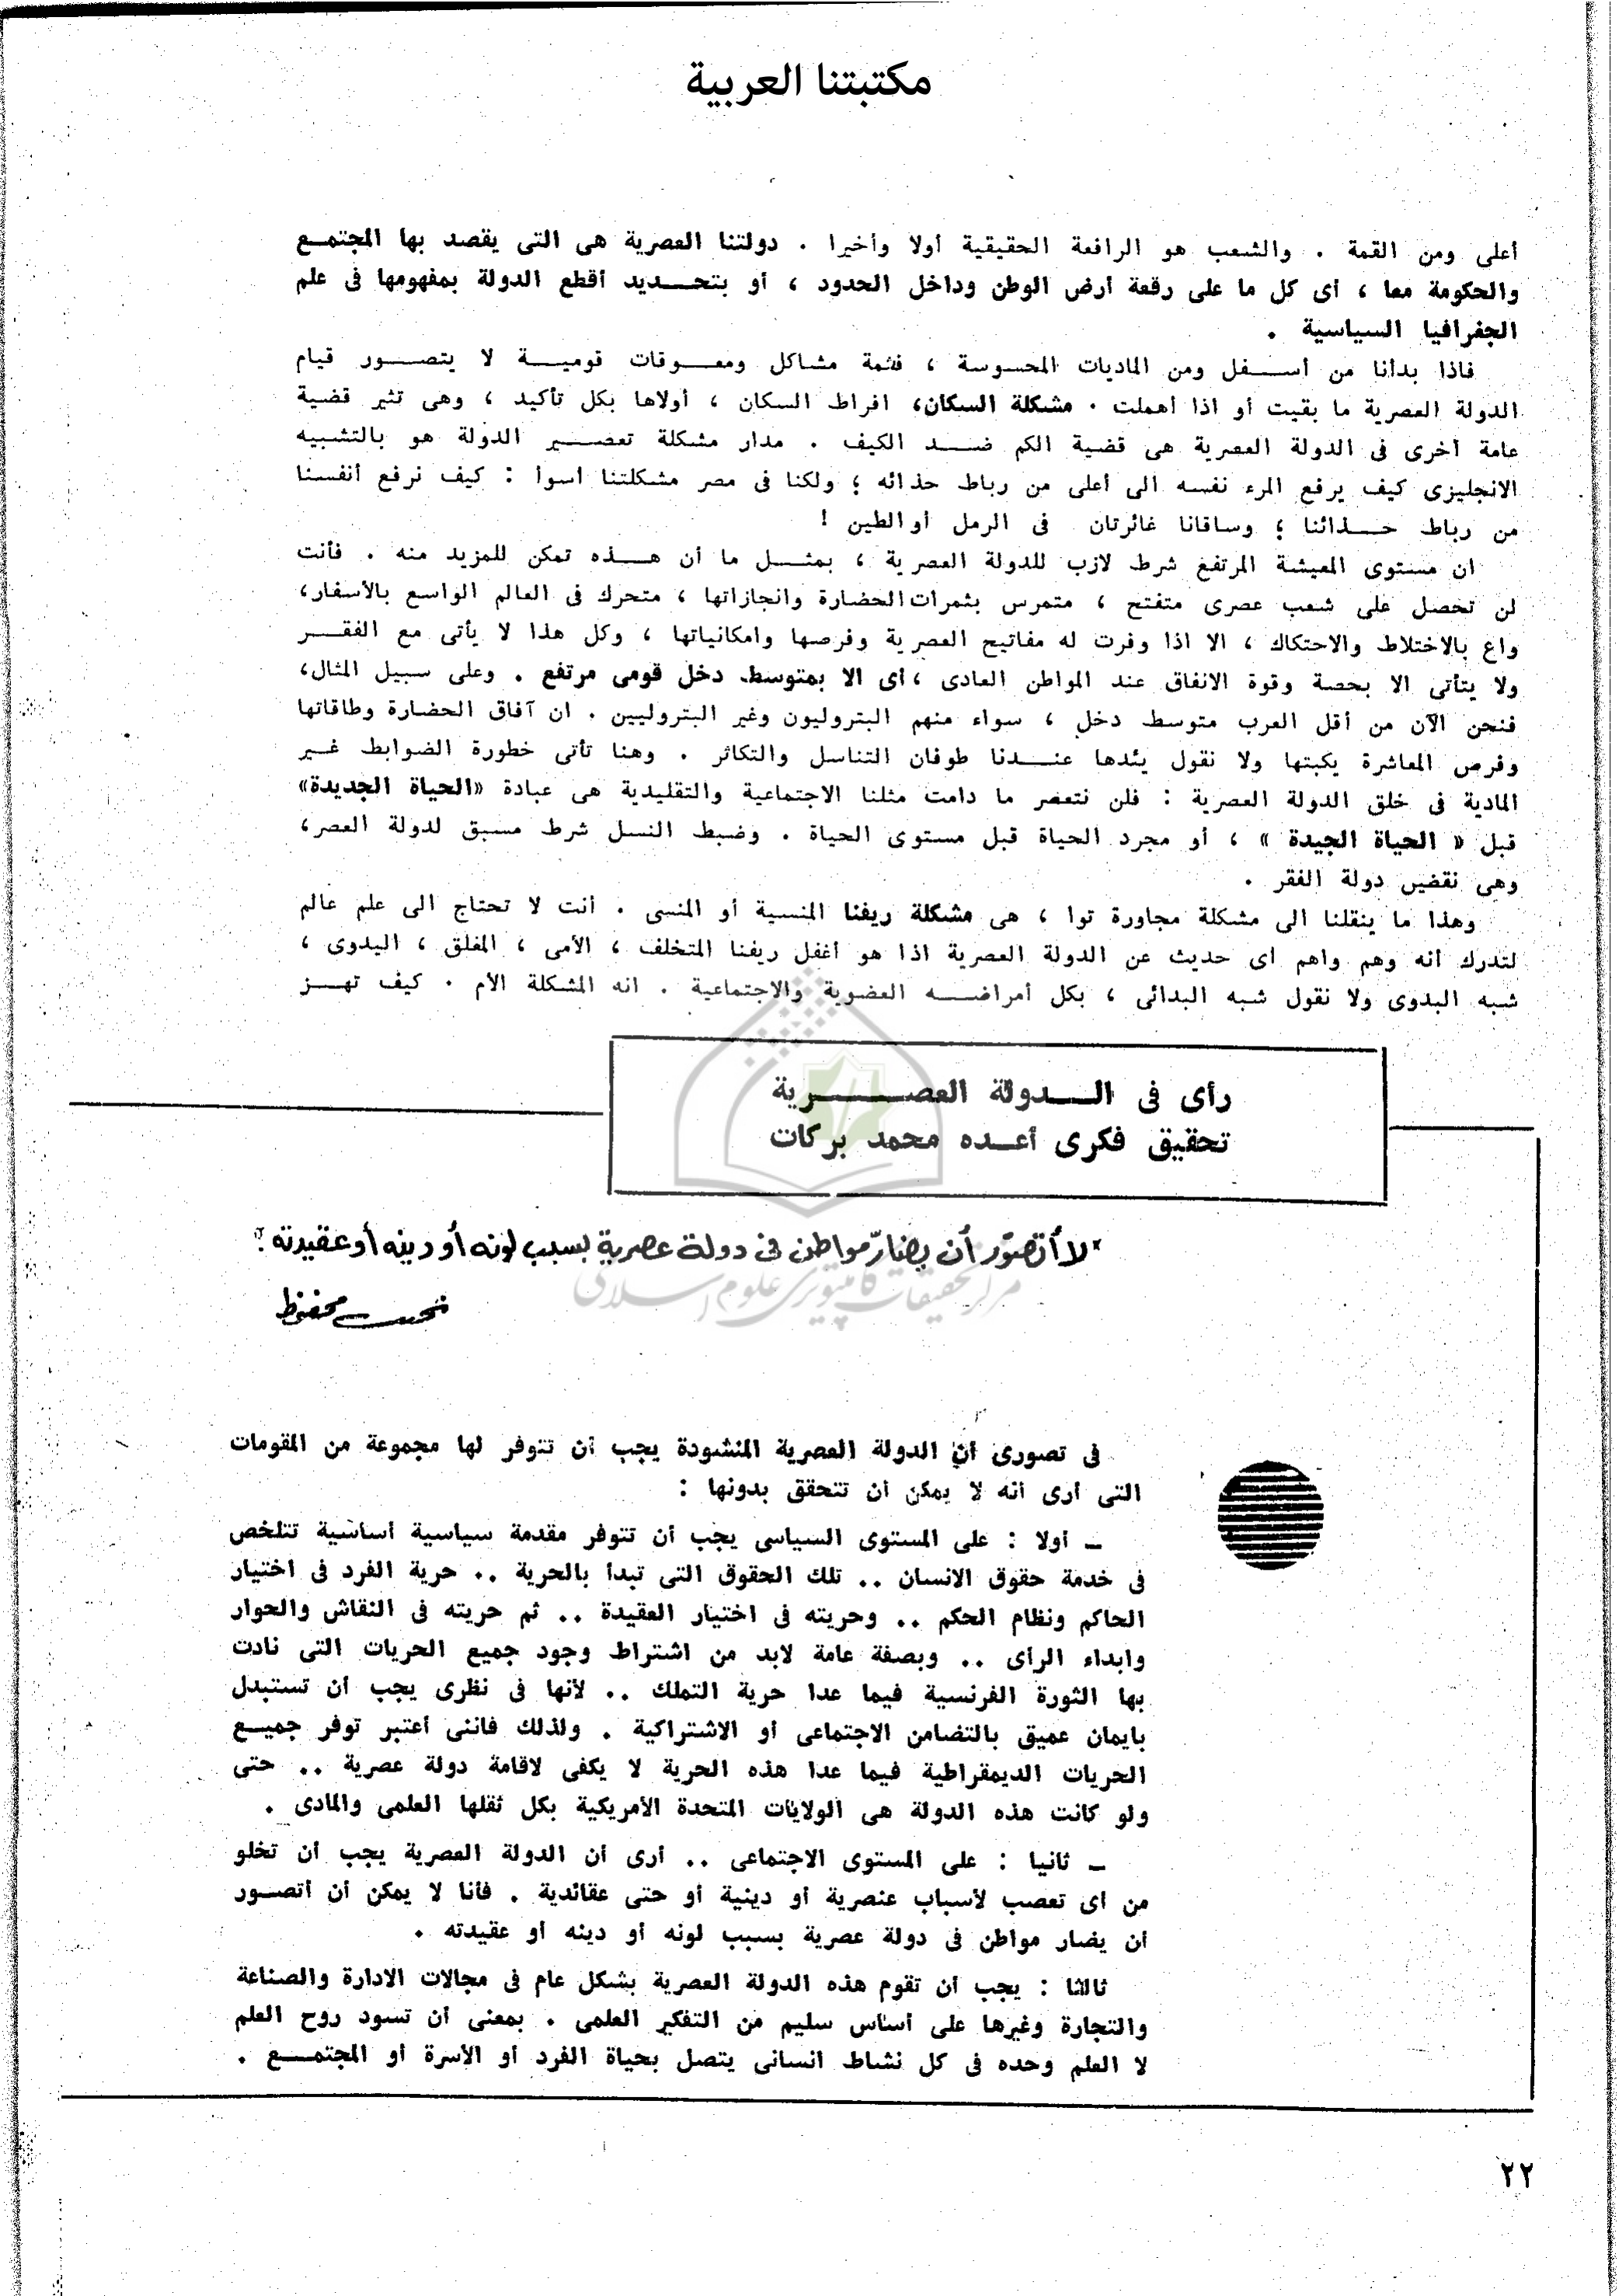 مكتبتنا العربية
أعلى ومن القمة . والشعب هو الرافعة الحقيقية أولا وأخيرا . دولتنا العصرية هى التى يقصد بها المجتمع
والحكومة معا ، أى كل ما على رقعة أرض الوطن وداخل الحدود ، أو بتحديد أقطع الدولة بمفهومها فى علم
الجغرافيا السياسية .
فاذا بدأنا من أسفل ومن الماديات المحسوسة ، فثمة مشاكل ومعوقات قومية لا يتصور قيام
الدولة العصرية ما بقيت أو اذا أهملت . مشكلة السكان، افراط السكان ، أولاها بكل تأكيد ، وهى تثير قضية
عامة أخرى فى الدولة العصرية هى قضية الكم ضد الكيف . مدار مشكلة تعصير الدولة هو بالتشبيه
الانجليزى كيف يرفع المرء نفسه الى أعلى من رباط حذائه ؛ ولكنا فى مصر مشكلتنا اسوأ : كيف نرفع أنفسنا
من رباط حذائنا ؛ وساقانا غائرتان فى الرمل أو الطين !
ان مستوى المعيشة المرتفع شرط لازب للدولة العصرية ، بمثل ما أن هذه تمكن للمزيد منه . فأنت
لن تحصل على شعب عصرى متفتح ، متمرس بثمرات الحضارة وانجازاتها ، متحرك فى العالم الواسع بالأسفار،
واع بالاختلاط والاحتكاك ، الا اذا وفرت له مفاتيح العصرية وفرصها وامكانياتها ، وكل هذا لا يأتى مع الفقر
ولا يتأتى الا بحصة وقوة الانفاق عند المواطن العادى ، أى الا بمتوسط دخل قومى مرتفع . وعلى سبيل المثال،
فنحن الآن من أقل العرب متوسط دخل ، سواء منهم البتروليون وغير البتروليين . ان آفاق الحضارة وطاقاتها
وفرص المعاشرة يكبتها ولا نقول يئدها عندنا طوفان التناسل والتكاثر . وهنا تأتى خطورة الضوابط غير
المادية فى خلق الدولة العصرية : فلن نتعصر ما دامت مثلنا الاجتماعية والتقليدية هى عبادة «الحياة الجديدة»
قبل « الحياة الجيدة » ، أو مجرد الحياة قبل مستوى الحياة . وضبط النسل شرط مسبق لدولة العصر،
وهى نقضين دولة الفقر .
وهذا ما ينقلنا الى مشكلة مجاورة توا ، هى مشكلة ريفنا المنسية أو المنسى . أنت لا تحتاج الى علم عالم
لتدرك أنه وهم واهم أى حديث عن الدولة العصرية اذا هو أغفل ريفنا المتخلف ، الأمى ، المغلق ، اليدوى ،
شبه البدوى ولا نقول شبه البدائى ، بكل أمراضه العضوية والاجتماعية . انه المشكلة الأم . كيف تهز
رأى فى الدولة العصرية
تحقيق فكرى أعده محمد بركات
"لا أتصوّر أن يضارّ مواطن فى دولة عصرية بسبب لونه أو دينه أو عقيدته"
نجيب محفوظ
مركز تحقيقات كامپيوتري علوم اسلامي
فى تصورى أن الدولة العصرية المنشودة يجب أن تتوفر لها مجموعة من المقومات
التى أرى أنه لا يمكن أن تتحقق بدونها :
ــ أولا : على المستوى السياسى يجب أن تتوفر مقدمة سياسية أساسية تتلخص
فى خدمة حقوق الانسان .. تلك الحقوق التى تبدأ بالحرية .. حرية الفرد فى اختيار
الحاكم ونظام الحكم .. وحريته فى اختيار العقيدة .. ثم حريته فى النقاش والحوار
وابداء الرأى .. وبصفة عامة لابد من اشتراط وجود جميع الحريات التى نادت
بها الثورة الفرنسية فيما عدا حرية التملك .. لأنها فى نظرى يجب أن تستبدل
بايمان عميق بالتضامن الاجتماعى أو الاشتراكية . ولذلك فاننى أعتبر توفر جميع
الحريات الديمقراطية فيما عدا هذه الحرية لا يكفى لاقامة دولة عصرية .. حتى
ولو كانت هذه الدولة هى الولايات المتحدة الأمريكية بكل ثقلها العلمى والمادى .
ــ ثانيا : على المستوى الاجتماعى .. أرى أن الدولة العصرية يجب أن تخلو
من أى تعصب لأسباب عنصرية أو دينية أو حتى عقائدية . فأنا لا يمكن أن أتصور
أن يضار مواطن فى دولة عصرية بسبب لونه أو دينه أو عقيدته .
ثالثا : يجب أن تقوم هذه الدولة العصرية بشكل عام فى مجالات الادارة والصناعة
والتجارة وغيرها على أساس سليم من التفكير العلمى . بمعنى أن تسود روح العلم
لا العلم وحده فى كل نشاط انسانى يتصل بحياة الفرد أو الأسرة أو المجتمع .
٢٢